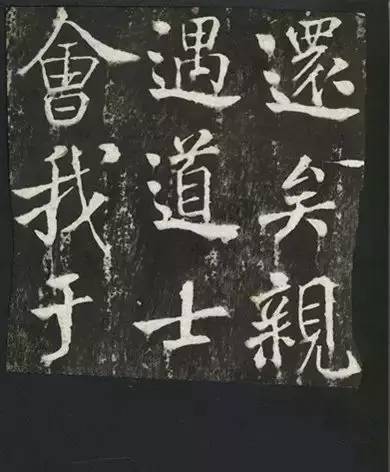 還矣親
遇道士
會我于